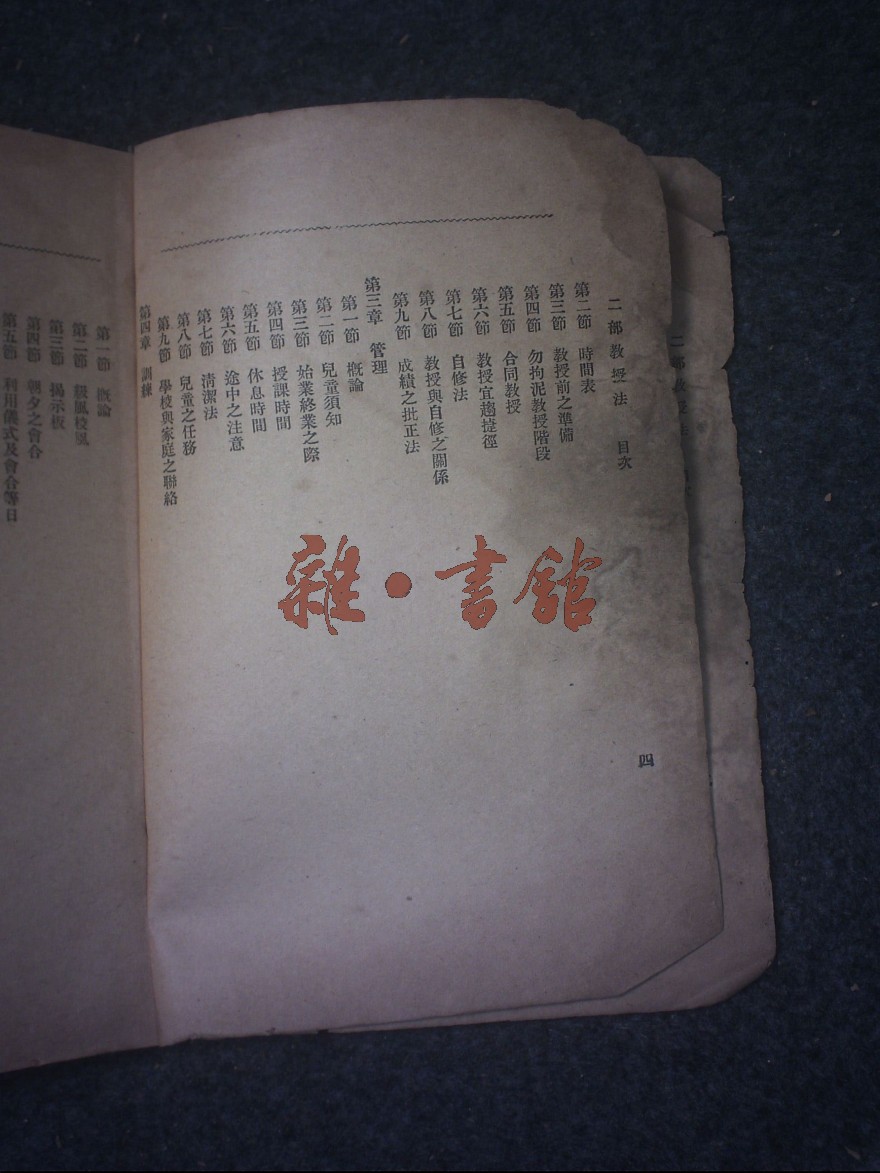 二部教授法 目次
第二節 時間表
第三節 教授前之準備
第四節 勿拘泥教授階段
第五節 合同教授
第六節 教授宜趨捷徑
第七節 自修法
第八節 教授與自修之關係
第九節 成績之批正法
第三章 管理
第一節 概論
第二節 兒童須知
第三節 始業終業之際
第四節 授課時間
第五節 休息時間
第六節 途中之注意
第七節 清潔法
第八節 兒童之任務
第九節 學校與家庭之聯絡
第四章 訓練
四
第一節 概論
第二節 級風校風
第三節 揭示板
第四節 朝夕之會合
第五節 利用儀式及會合等日
二部教授法
雜·書館